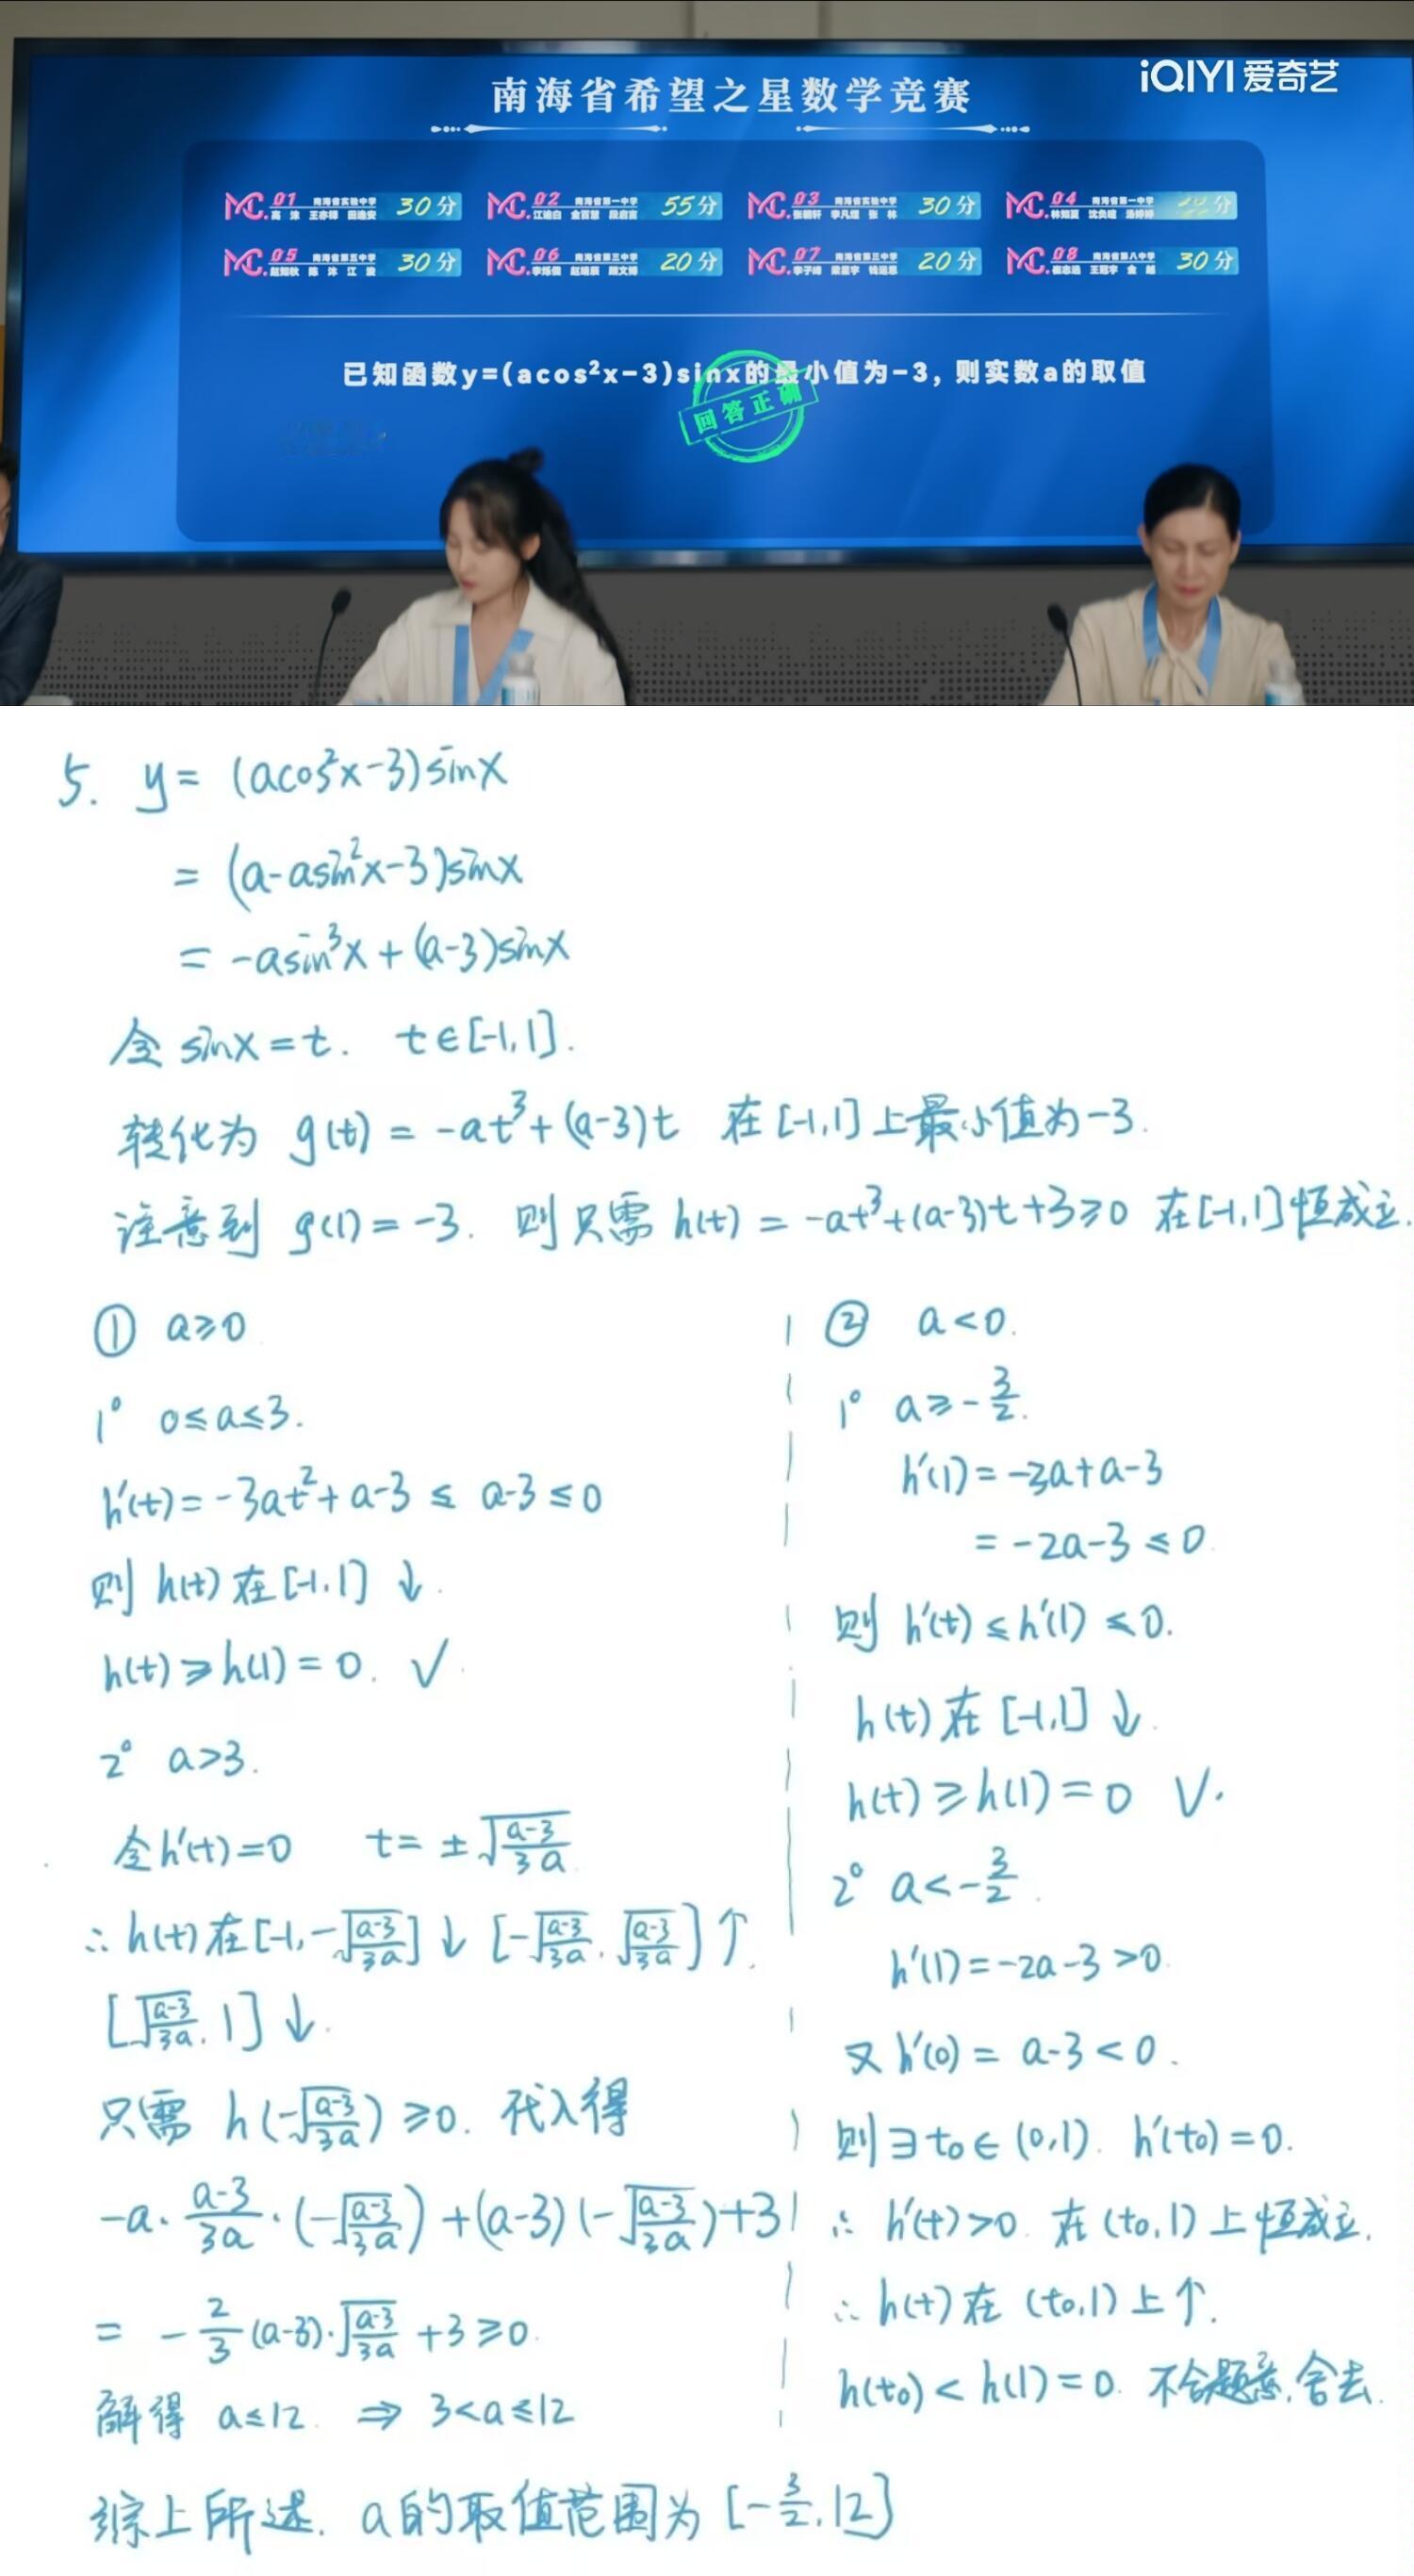 iQIYI 爱奇艺
南海省希望之星数学竞赛
MC.01 南海省实验中学 30分
MC.02 南海省第一中学 55分
MC.03 南海省实验中学 30分
MC.04 南海省第一中学 分
MC.05 南海省第五中学 30分
MC.06 南海省第三中学 20分
MC.07 南海省第三中学 20分
MC.08 南海省第八中学 30分
已知函数y=(acos²x-3)sinx的最小值为-3，则实数a的取值
回答正确
5. y = (acos²x-3)sinx
= (a-asin²x-3)sinx
= -asin³x+(a-3)sinx
令 sinx=t. t∈[-1,1].
转化为 g(t) = -at³+(a-3)t 在[-1,1]上最小值为-3.
注意到 g(1)=-3. 则只需 h(t) = -at³+(a-3)t+3≥0 在[-1,1]恒成立.
① a≥0
1° 0≤a≤3.
h'(t)=-3at²+a-3 ≤ a-3≤0
则 h(t)在[-1,1] ↓.
h(t)≥h(1)=0. √.
2° a>3.
令h'(t)=0 t=±√((a-3)/(3a))
∴ h(t)在[-1,-√((a-3)/(3a))]↓ [-√((a-3)/(3a)),√((a-3)/(3a))]↑.
[√((a-3)/(3a)),1]↓.
只需 h(-√((a-3)/(3a)))≥0. 代入得
-a·(a-3)/(3a)·(-√((a-3)/(3a)))+(a-3)(-√((a-3)/(3a)))+3
= -2/3(a-3)·√((a-3)/(3a))+3≥0.
解得 a≤12. ⇒ 3<a≤12
② a<0.
1° a≥-3/2.
h'(1)=-3a+a-3
=-2a-3≤0.
则 h'(t)≤h'(1)≤0.
h(t)在[-1,1]↓.
h(t)≥h(1)=0 √.
2° a<-3/2.
h'(1)=-2a-3>0.
又h'(0)=a-3<0.
则∃t₀∈(0,1). h'(t₀)=0.
∴ h'(t)>0. 在(t₀,1)上恒成立.
∴ h(t)在(t₀,1)上↑.
h(t₀)<h(1)=0. 不合题意,舍去.
综上所述. a的取值范围为[-3/2,12]